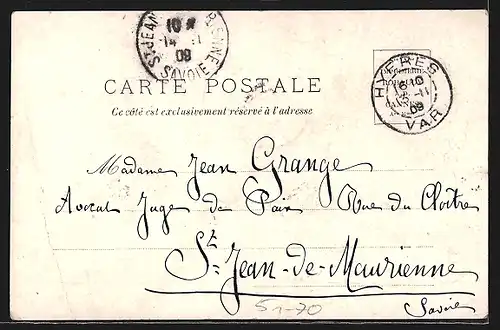 St JEAN ENNE
10
14 11
09
SAVOIE
CARTE POSTALE
Ce côté est exclusivement réservé à l'adresse
HYERES
6 10
11
09
VAR
Madame Jean Grange
Avocat Juge de Paix Rue du Cloître
St-Jean-de-Maurienne
Savoie
5-70